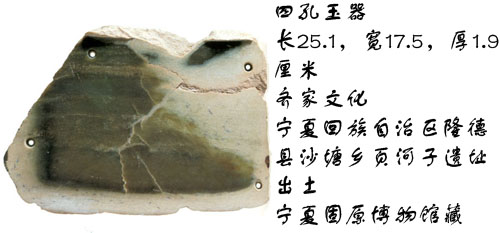 四孔玉器
长25.1，宽17.5，厚1.9
厘米
齐家文化
宁夏回族自治区隆德
县沙塘乡页河子遗址
出土
宁夏固原博物馆藏